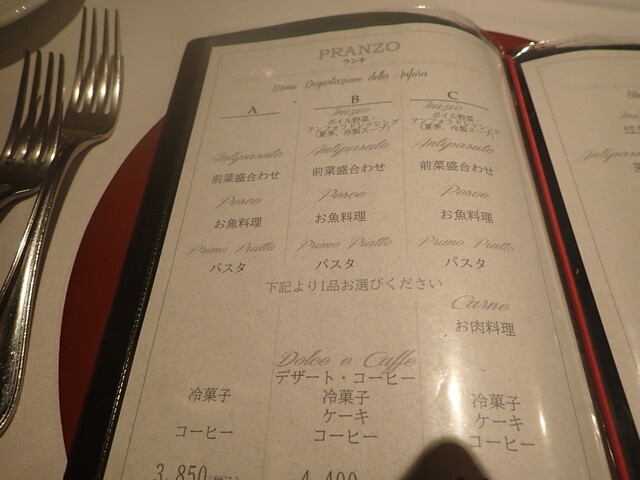 PRANZO
ランチ
Menu Degustazione della Anfora
A B C
Inizio Inizio
ボイル野菜・ ボイル野菜・
アンフォラドレッシング アンフォラドレッシング
(夏季、冷製スープ) (夏季、冷製スープ)
Antipasuto Antipasuto Antipasuto
前菜盛合わせ 前菜盛合わせ 前菜盛合わせ
Pesce Pesce Pesce
お魚料理 お魚料理 お魚料理
Primo Piatto Primo Piatto Primo Piatto
パスタ パスタ パスタ
下記より1品お選びください
Carne
お肉料理
Dolce e Caffe
デザート・コーヒー
冷菓子 冷菓子 冷菓子
ケーキ ケーキ
コーヒー コーヒー コーヒー
3,850 4,400